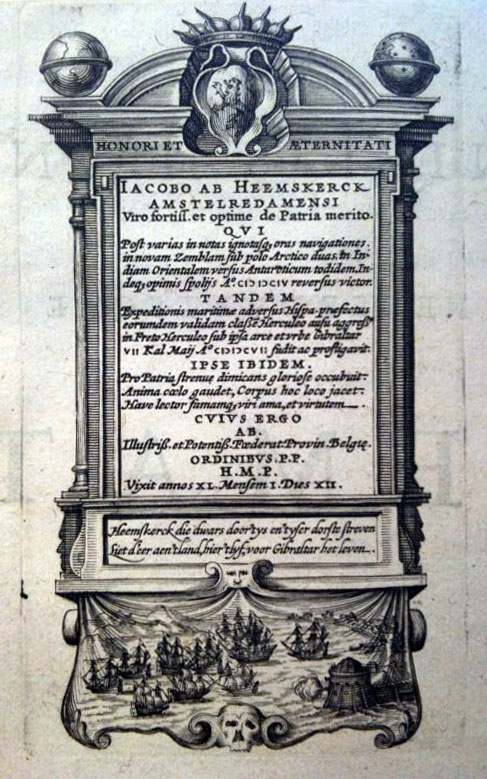 HONORI ET ÆTERNITATI
IACOBO AB HEEMSKERCK
AMSTELREDAMENSI
Viro fortiss. et optime de Patria merito.
QVI
Post varias in notas ignotasq, oras navigationes.
in novam Zemblam sub polo Arctico duas. in In-
diam Orientalem versus Antarcticum todidem. In-
deq, opimis spolijs Aº. CIↃIↃCIV reversus victor.
TANDEM
Expeditionis maritimæ adversus Hispa. præfectus
eorumdem validam classē Herculeo ausu aggress⁹
in Freto Herculeo sub ipsa arce et vrbe Gibraltar
VII Kal Maij Aº CIↃIↃCVII fudit ac profligavit.
IPSE IBIDEM.
Pro Patria strenuę dimicans gloriose occubuit:
Anima cœlo gaudet, Corpus hoc loco jacet:
Have lector famamq, viri ama, et virtutem
CVIVS ERGO
AB.
Illustriss. et Potentiss. Fœderat. Provin. Belgię.
ORDINIBVS. P.P.
H.M.P.
Vixit annos XL. Mensem I. Dies XII.
Heemskerck die dwars door tys en tyser dorste streven
Liet d'eer aen t'land, hier t'lyf, voor Gibraltar het leven